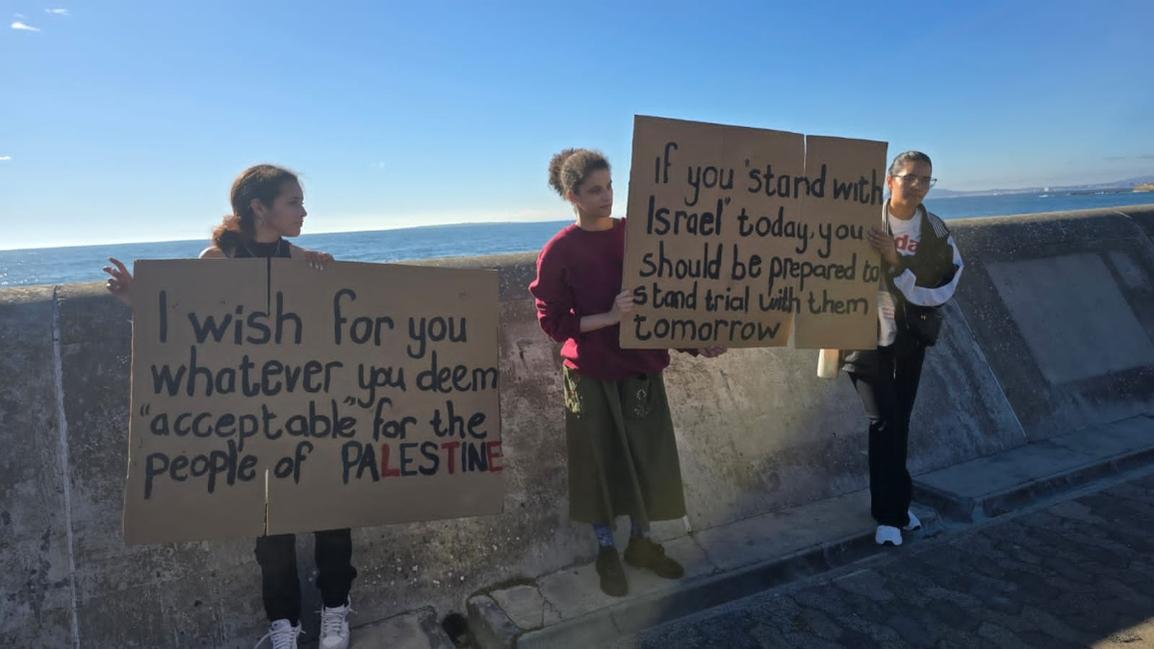 I wish for you
whatever you deem
"acceptable" for the
people of PALESTINE
If you "stand with
Israel" today, you
should be prepared to
stand trial with them
tomorrow